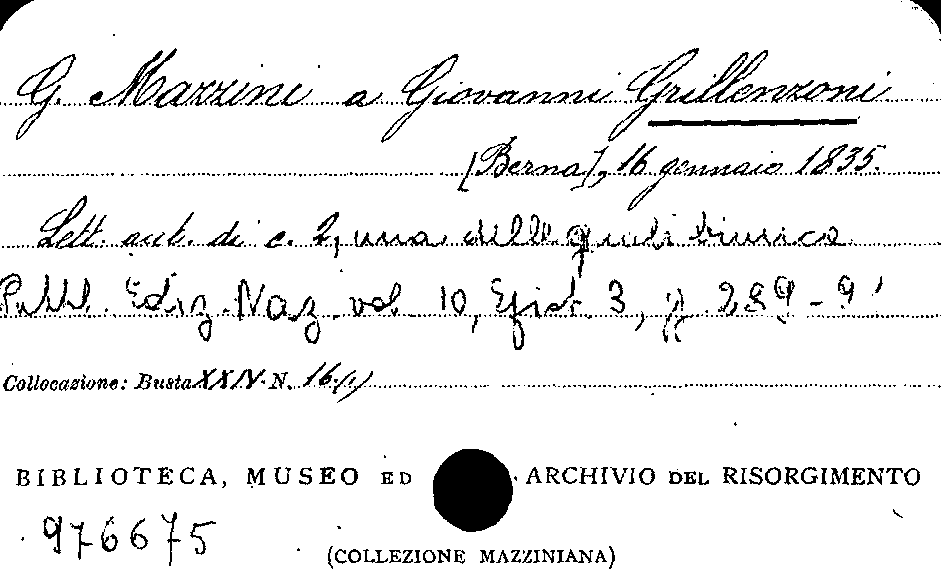 G. Mazzini a Giovanni Grillenzoni
[Berna], 16 gennaio 1835.
Lett. aut. di c. 2, una delle quali bianca
Pubbl. Ediz. Naz. vol. 10, Epist. 3, pp. 289-91
Collocazione: Busta XXIV. N. 16.(1)
BIBLIOTECA, MUSEO ED ARCHIVIO DEL RISORGIMENTO
976675
(COLLEZIONE MAZZINIANA)